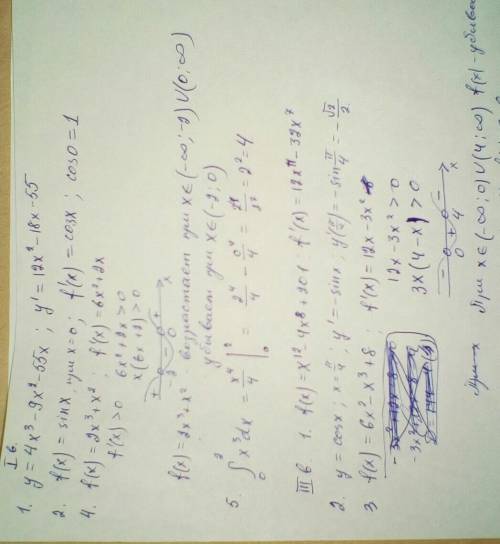 I в.
1. y = 4x³ - 9x² - 55x ; y' = 12x² - 18x - 55
2. f(x) = sinx, при x = 0 ; f'(x) = cosx ; cos0 = 1
4. f(x) = 2x³ + x² ; f'(x) = 6x² + 2x
f'(x) > 0 6x² + 2x > 0
x(6x + 12) > 0
+ - +
-2 0 x
f(x) = 2x³ + x² возрастает при x∈(-∞; -2)∪(0; ∞)
убывает при x∈(-2; 0)
5. ∫₀² x³dx = x⁴/4 |₀² = 2⁴/4 - 0⁴/4 = 2⁴/2² = 2² = 4
III в 1. f(x) = x¹² - 4x⁸ + 201 ; f'(x) = 12x¹¹ - 32x⁷
2. y = cosx ; x = π/4 ; y' = -sinx ; y'(π/4) = -sin π/4 = -√2/2.
3 f(x) = 6x² - x³ + 8 ; f'(x) = 12x - 3x²
12x - 3x² > 0
3x(4 - x) > 0
- + -
0 4 x
При x∈(-∞; 0)∪(4; ∞) f(x) -